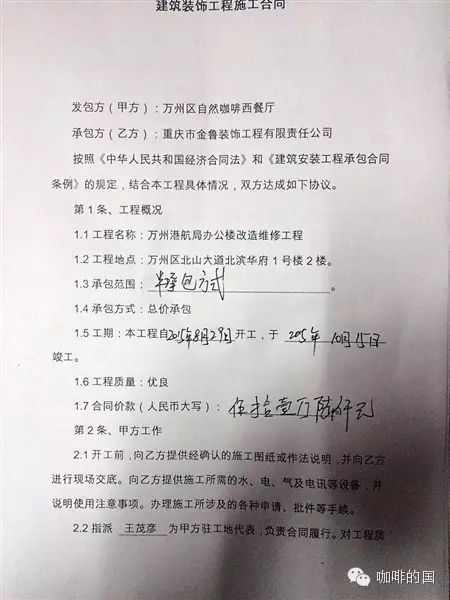 建筑装饰工程施工合同
发包方（甲方）：万州区自然咖啡西餐厅
承包方（乙方）：重庆市金鲁装饰工程有限责任公司
按照《中华人民共和国经济合同法》和《建筑安装工程承包合同
条例》的规定，结合本工程具体情况，双方达成如下协议。
第1条、工程概况
1.1工程名称：万州港航局办公楼改造维修工程
1.2工程地点：万州区北山大道北滨华府1号楼2楼。
1.3承包范围：半承包方式。
1.4承包方式：总价承包
1.5工期：本工程自2015年8月29日开工，于2015年10月15日
竣工。
1.6工程质量：优良
1.7合同价款（人民币大写）：伍拾壹万陆仟元
第2条、甲方工作
2.1开工前，向乙方提供经确认的施工图纸或作法说明，并向乙方
进行现场交底。向乙方提供施工所需的水、电、气及电讯等设备，并
说明使用注意事项。办理施工所涉及的各种申请、批件等手续。
2.2指派 王茂彦 为甲方驻工地代表，负责合同履行。对工程质
咖啡的国